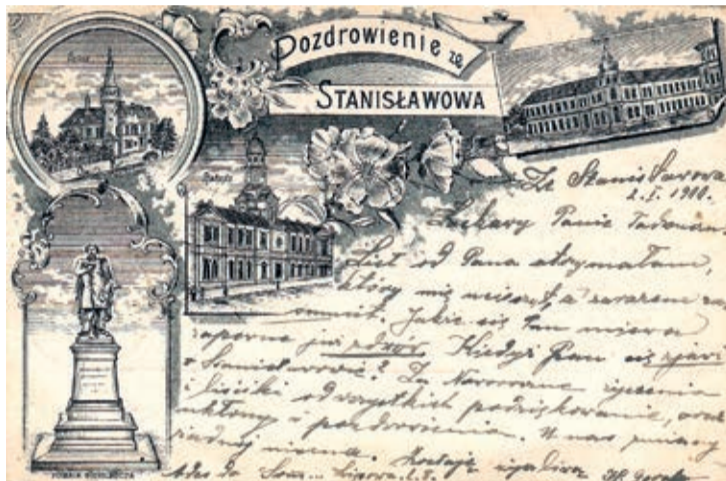 Pozdrowienie ze
STANISŁAWOWA
Ratusz
POMNIK MICKIEWICZA
Ze Stanisławowa
2. I. 1900.
Łaskawy Panie
List od Pana otrzymałam,
który mię ucieszył, a zarazem
zasmucił. Jakże się Pan miewa
zapewne już zdrów. Kiedyż Pan się zjawi
w Stanisławowie? Za Noworoczne życzenia
i liściki od wszystkich podziękowanie, oraz
ukłony i pozdrowienia. U nas zmiany
żadnej niema. Zostaję życzliwa